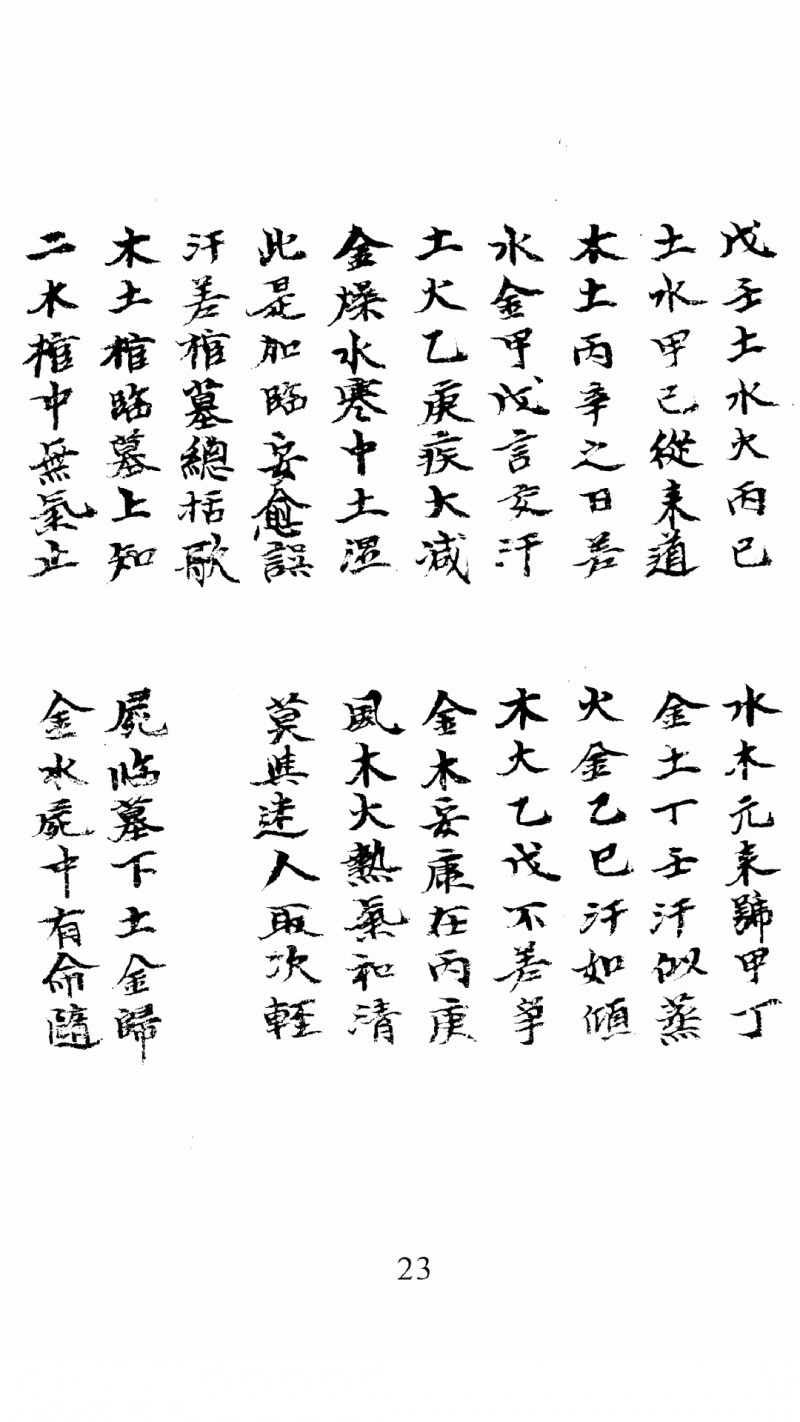 戊壬土水火丙巳　水木元来號甲丁
土水甲己從来道　金土丁壬汗似蒸
木土丙辛之日差　火金乙巳汗如傾
水金甲戊言交汗　木火乙戊不差争
土火乙庚疾大減　金木妥康在丙庚
金燥水寒中土湿　風木火熱氣和清
此是加臨安愈誤　莫與迷人取次輕
汗差棺墓總括歌
木土棺臨墓上知　屍临墓下土金歸
二木棺中無氣止　金水屍中有命隨
23